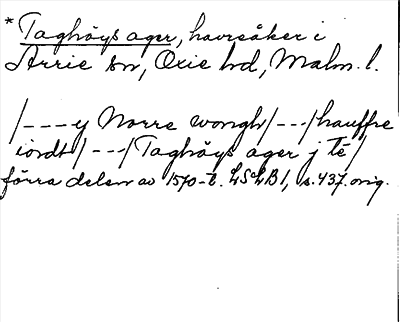 * Taghöys ager, havreåker i
Arrie sn, Oxie hd, Malm. l.
/---y Norre wongh/---/hauffre
iordt/---/Taghöys ager j tē/
förra delen av 1570-t. LSLB 1, s. 437. orig.